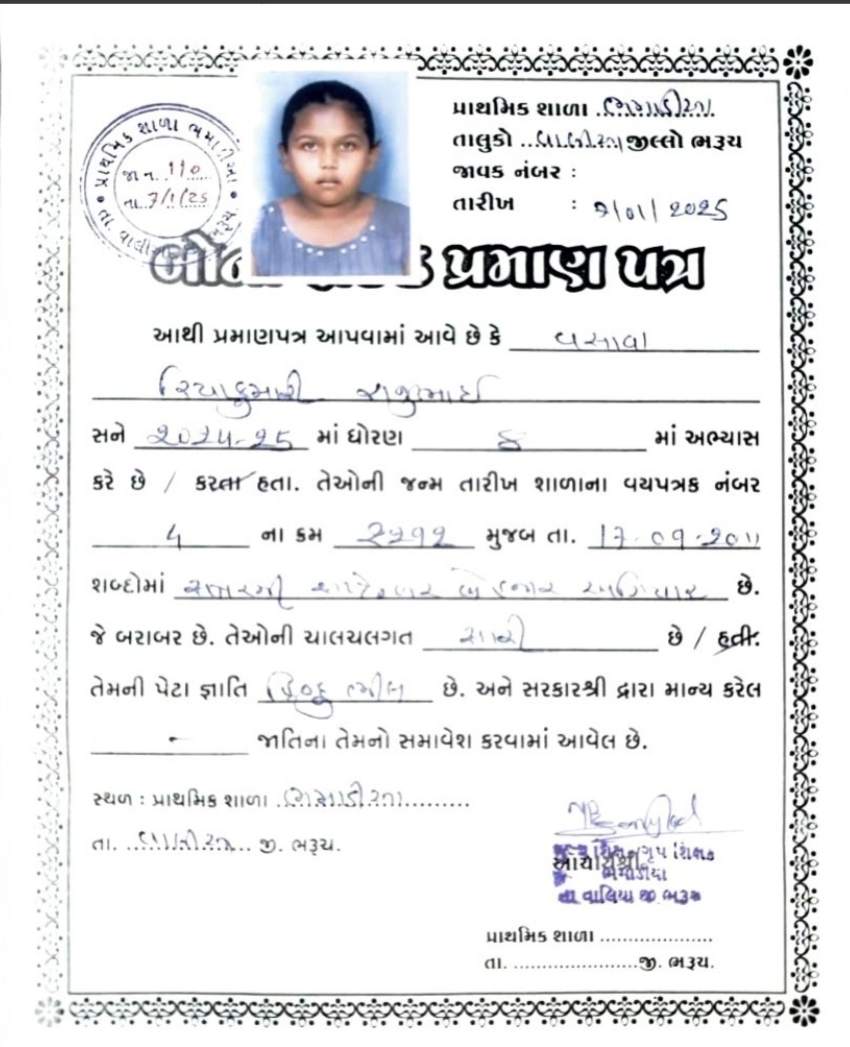 પ્રાથમિક શાળા ભમાડીયા
જા ન. 110
તા. 7/1/25
તા. વાલીયા ભરૂચ
પ્રાથમિક શાળા ભમાડીયા
તાલુકો વાલીયા જીલ્લો ભરૂચ
જાવક નંબર :
તારીખ : 7/01/2025
પ્રમાણ પત્ર
આથી પ્રમાણપત્ર આપવામાં આવે છે કે વસાવા
રિયાકુમારી રાજુભાઈ
સને 2024-25 માં ધોરણ 8 માં અભ્યાસ
કરે છે / કરતા હતા. તેઓની જન્મ તારીખ શાળાના વયપત્રક નંબર
4 ના ક્રમ મુજબ તા. 17-09-2011
શબ્દોમાં સત્તરમી સપ્ટેમ્બર બે હજાર અગિયાર છે.
જે બરાબર છે. તેઓની ચાલચલગત સારી છે / હતી.
તેમની પેટા જ્ઞાતિ હિન્દુ ભીલ છે. અને સરકારશ્રી દ્વારા માન્ય કરેલ
- જાતિના તેમનો સમાવેશ કરવામાં આવેલ છે.
સ્થળ : પ્રાથમિક શાળા ભમાડીયા
તા. વાલીયા જી. ભરૂચ.
આચાર્યશ્રી
મુખ્ય શિક્ષક ગૃપ શિક્ષક
ભમાડીયા
તા વાલિયા જી ભરૂચ
પ્રાથમિક શાળા ....................
તા. ......................જી. ભરૂચ.